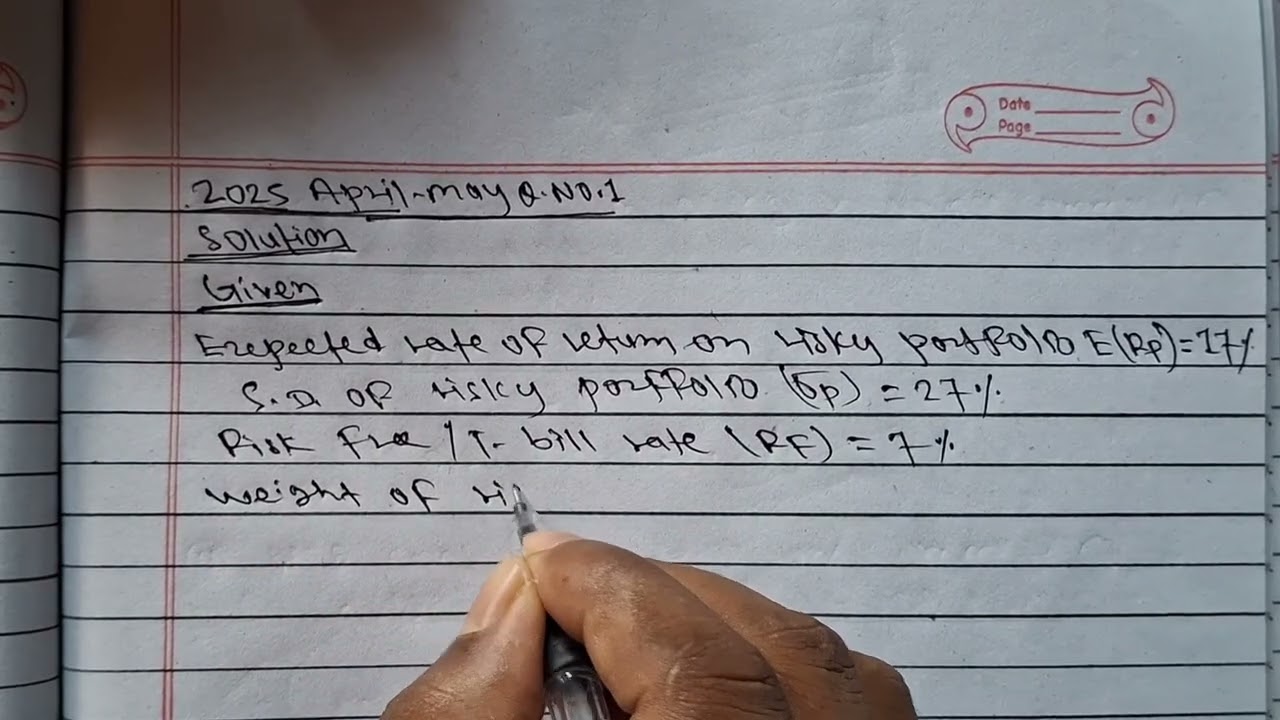 Date
Page
2025 April-may Q.No.1
Solution
Given
Exepected rate of return on risky portfolio E(Rp)=17%
S.D. of risky portfolio (σp) = 27%
Risk free / T-bill rate (RF) = 7%
weight of ri